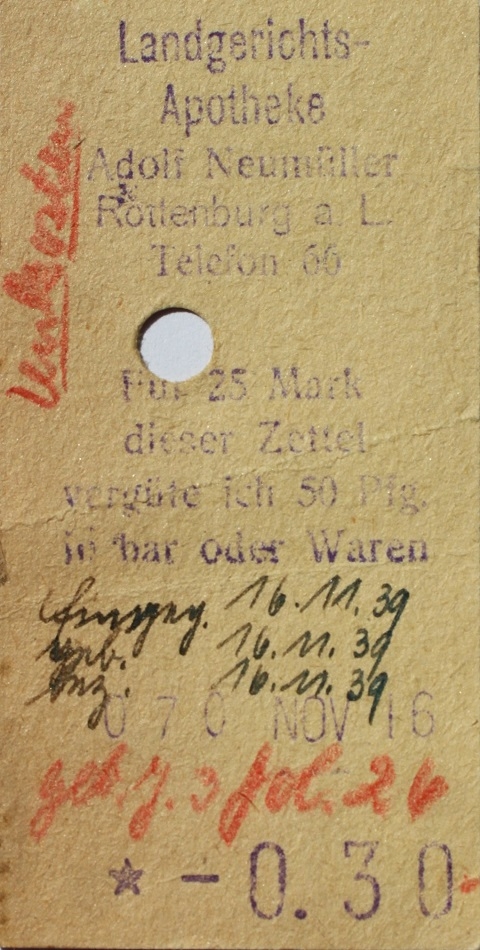 Landgerichts-
Apotheke
Adolf Neumüller
Rottenburg a. L.
Telefon 66
Für 25 Mark
dieser Zettel
vergüte ich 50 Pfg.
in bar oder Waren
16.11.39
16.11.39
bez. 16.11.39
070 NOV 16
fol. 26
* - 0.30